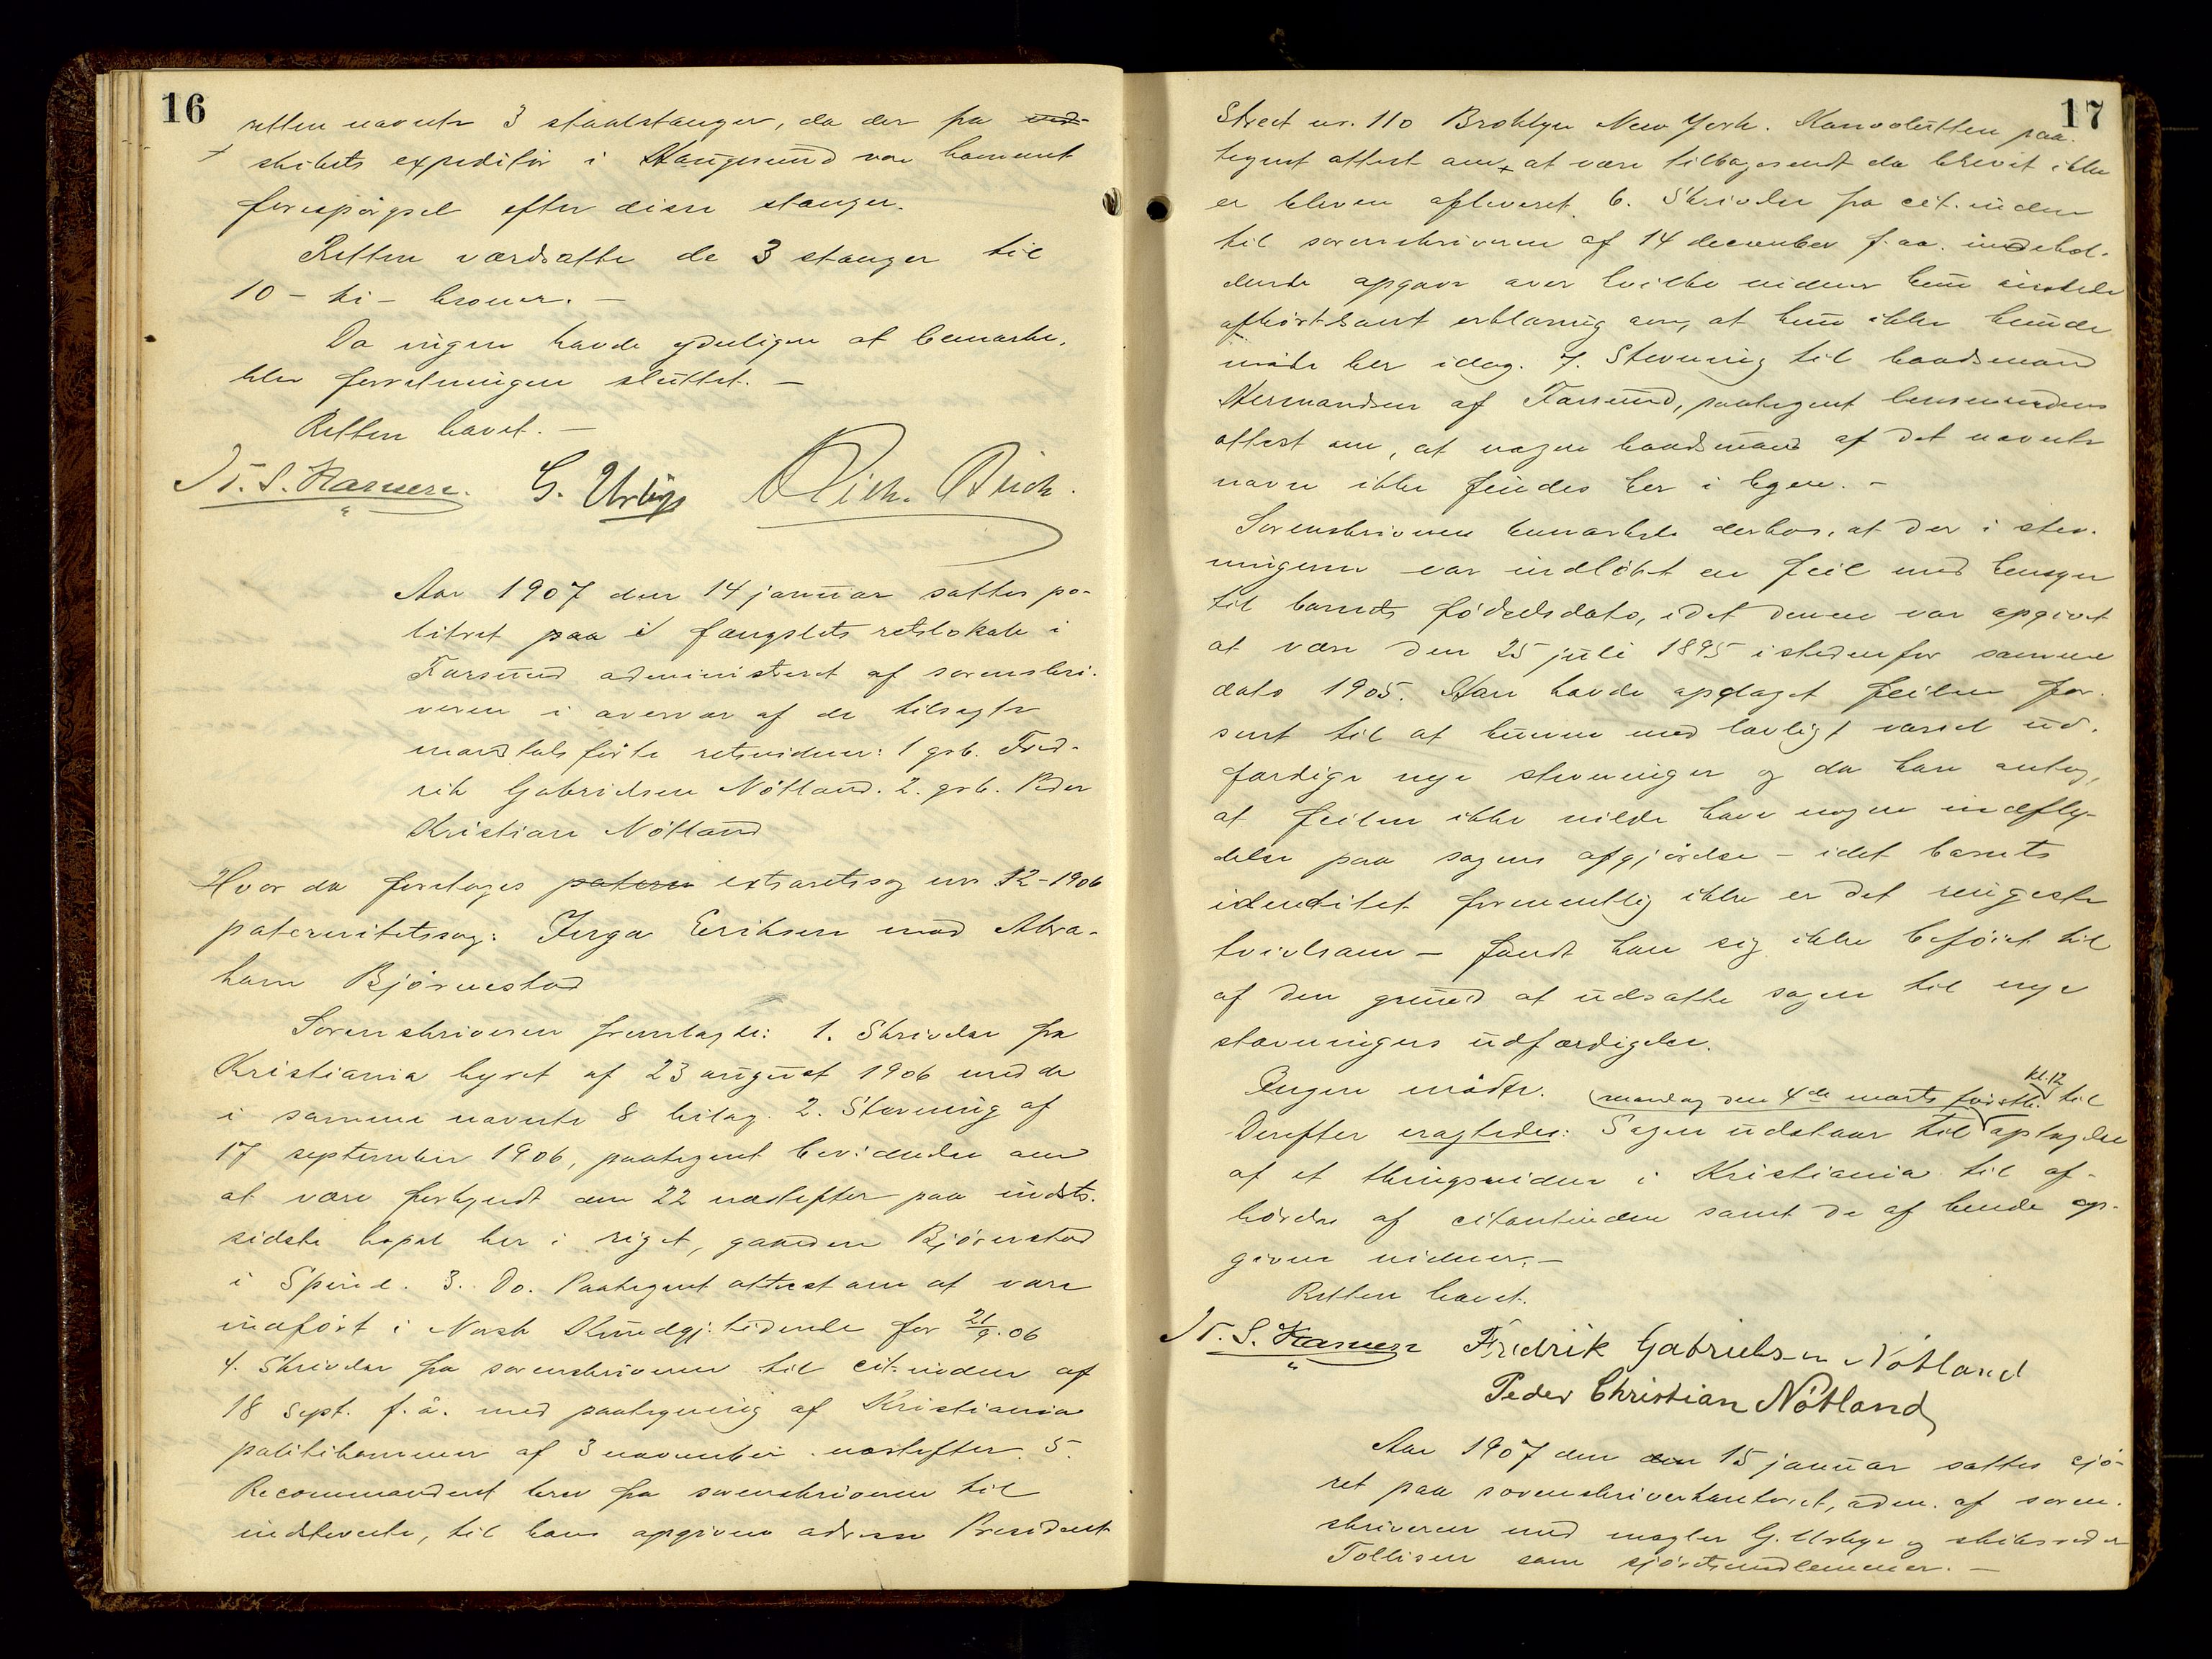 16
retten nævnte 3 staalstanger, da der fra ved-
+ skibets expeditør i Haugesund var kommet
forespørgsel efter disse stanger.
Retten værdsatte de 3 stanger til
10 - ti - kroner. -
Da ingen havde yderligere at bemærke,
blev forretningen sluttet. -
Retten hævet. -
G. Urbye Rich. Buch.
Aar 1907 den 14 januar sattes po-
litiret paa i fængslets retslokale i
Farsund administreret af sorenskri-
veren i overvær af de tilsagte
mandtalsførte retsvidner: 1 grb. Fred-
rik Gabrielsen Nötland. 2. grb. Peder
Kristian Nötland
Hvor da foretages patern extraretssag nr 12-1906
paternitetssag: Inga Eriksen mod Abra-
ham Bjørnestad
Sorenskriveren fremlagde: 1. Skrivelse fra
Kristiania byret af 23 august 1906 med de
i samme nævnte 8 bilag. 2. Stevning af
17 september 1906, paategnet bevidnelse om
at være forkyndt den 22 næstefter paa indsts.
sidste bopæl her i riget, gaarden Bjørnestad
i Spind. 3. Do. Paategnet attest om at være
indført i Norsk Kundgj.tidende for 21/9.06
4. Skrivelse fra sorenskriveren til cit.inden af
18 sept. f.å. med paategning af Kristiania
politikammer af 3 november næstefter. 5.
Recommanderet brev fra sorenskriveren til
indstevnte, til hans opgivne adresse President
17
Street nr. 110 Broklyn New York. Konvolutten paa-
tegnet attest om + at være tilbagesendt da brevet ikke
er bleven afleveret. 6. Skrivelse fra cit.inden
til sorenskriveren af 14 december f.aa. indehol-
dende opgave over hvilke vidner hun ønskede
afhørt samt erklæring om, at hun ikke kunde
møde her idag. 7. Stevning til baadsmand
Hermandsen af Farsund, paategnet lensmandens
attest om, at nogen baadsmand af det nævnte
navn ikke findes her i byen. -
Sorenskriveren bemærkede derhos, at der i stev-
ningerne var indløbt en feil med hensyn
til barnets fødselsdato, idet denne var opgivet
at være den 25 juli 1895 istedenfor samme
dato 1905. Han havde opdaget feilen for
sent til at kunne med lovligt varsel ud-
færdige nye stevninger og da han antog,
at feilen ikke vilde have nogen indfly-
delse paa sagens afgjørelse - idet barnets
identitet formentlig ikke er det ringeste
tvivlsom - fandt han sig ikke beføiet til
af den grund at udsætte sagen til nye
stævningers udfærdigelse.
Ingen mødte. (mandag den 4de marts førstk. kl. 12 til
Derefter eragtedes: Sagen udstaar til optagelse
af et thingsvidne i Kristiania til af-
hørelse af citantinden samt de af hende op-
givne vidner. -
Retten hævet.
Fredrik Gabrielsen Nötland
Peder Christian Nötland
Aar 1907 den den 15 januar sattes sjø-
ret paa sorenskriverkontoret, adm. af soren-
skriveren med mægler G. Urbye og skibsreder
Tollisen som sjøretsmedlemmer. -